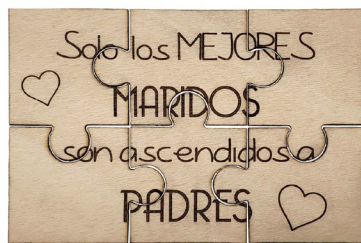 Solo los MEJORES
MARIDOS
son ascendidos a
PADRES